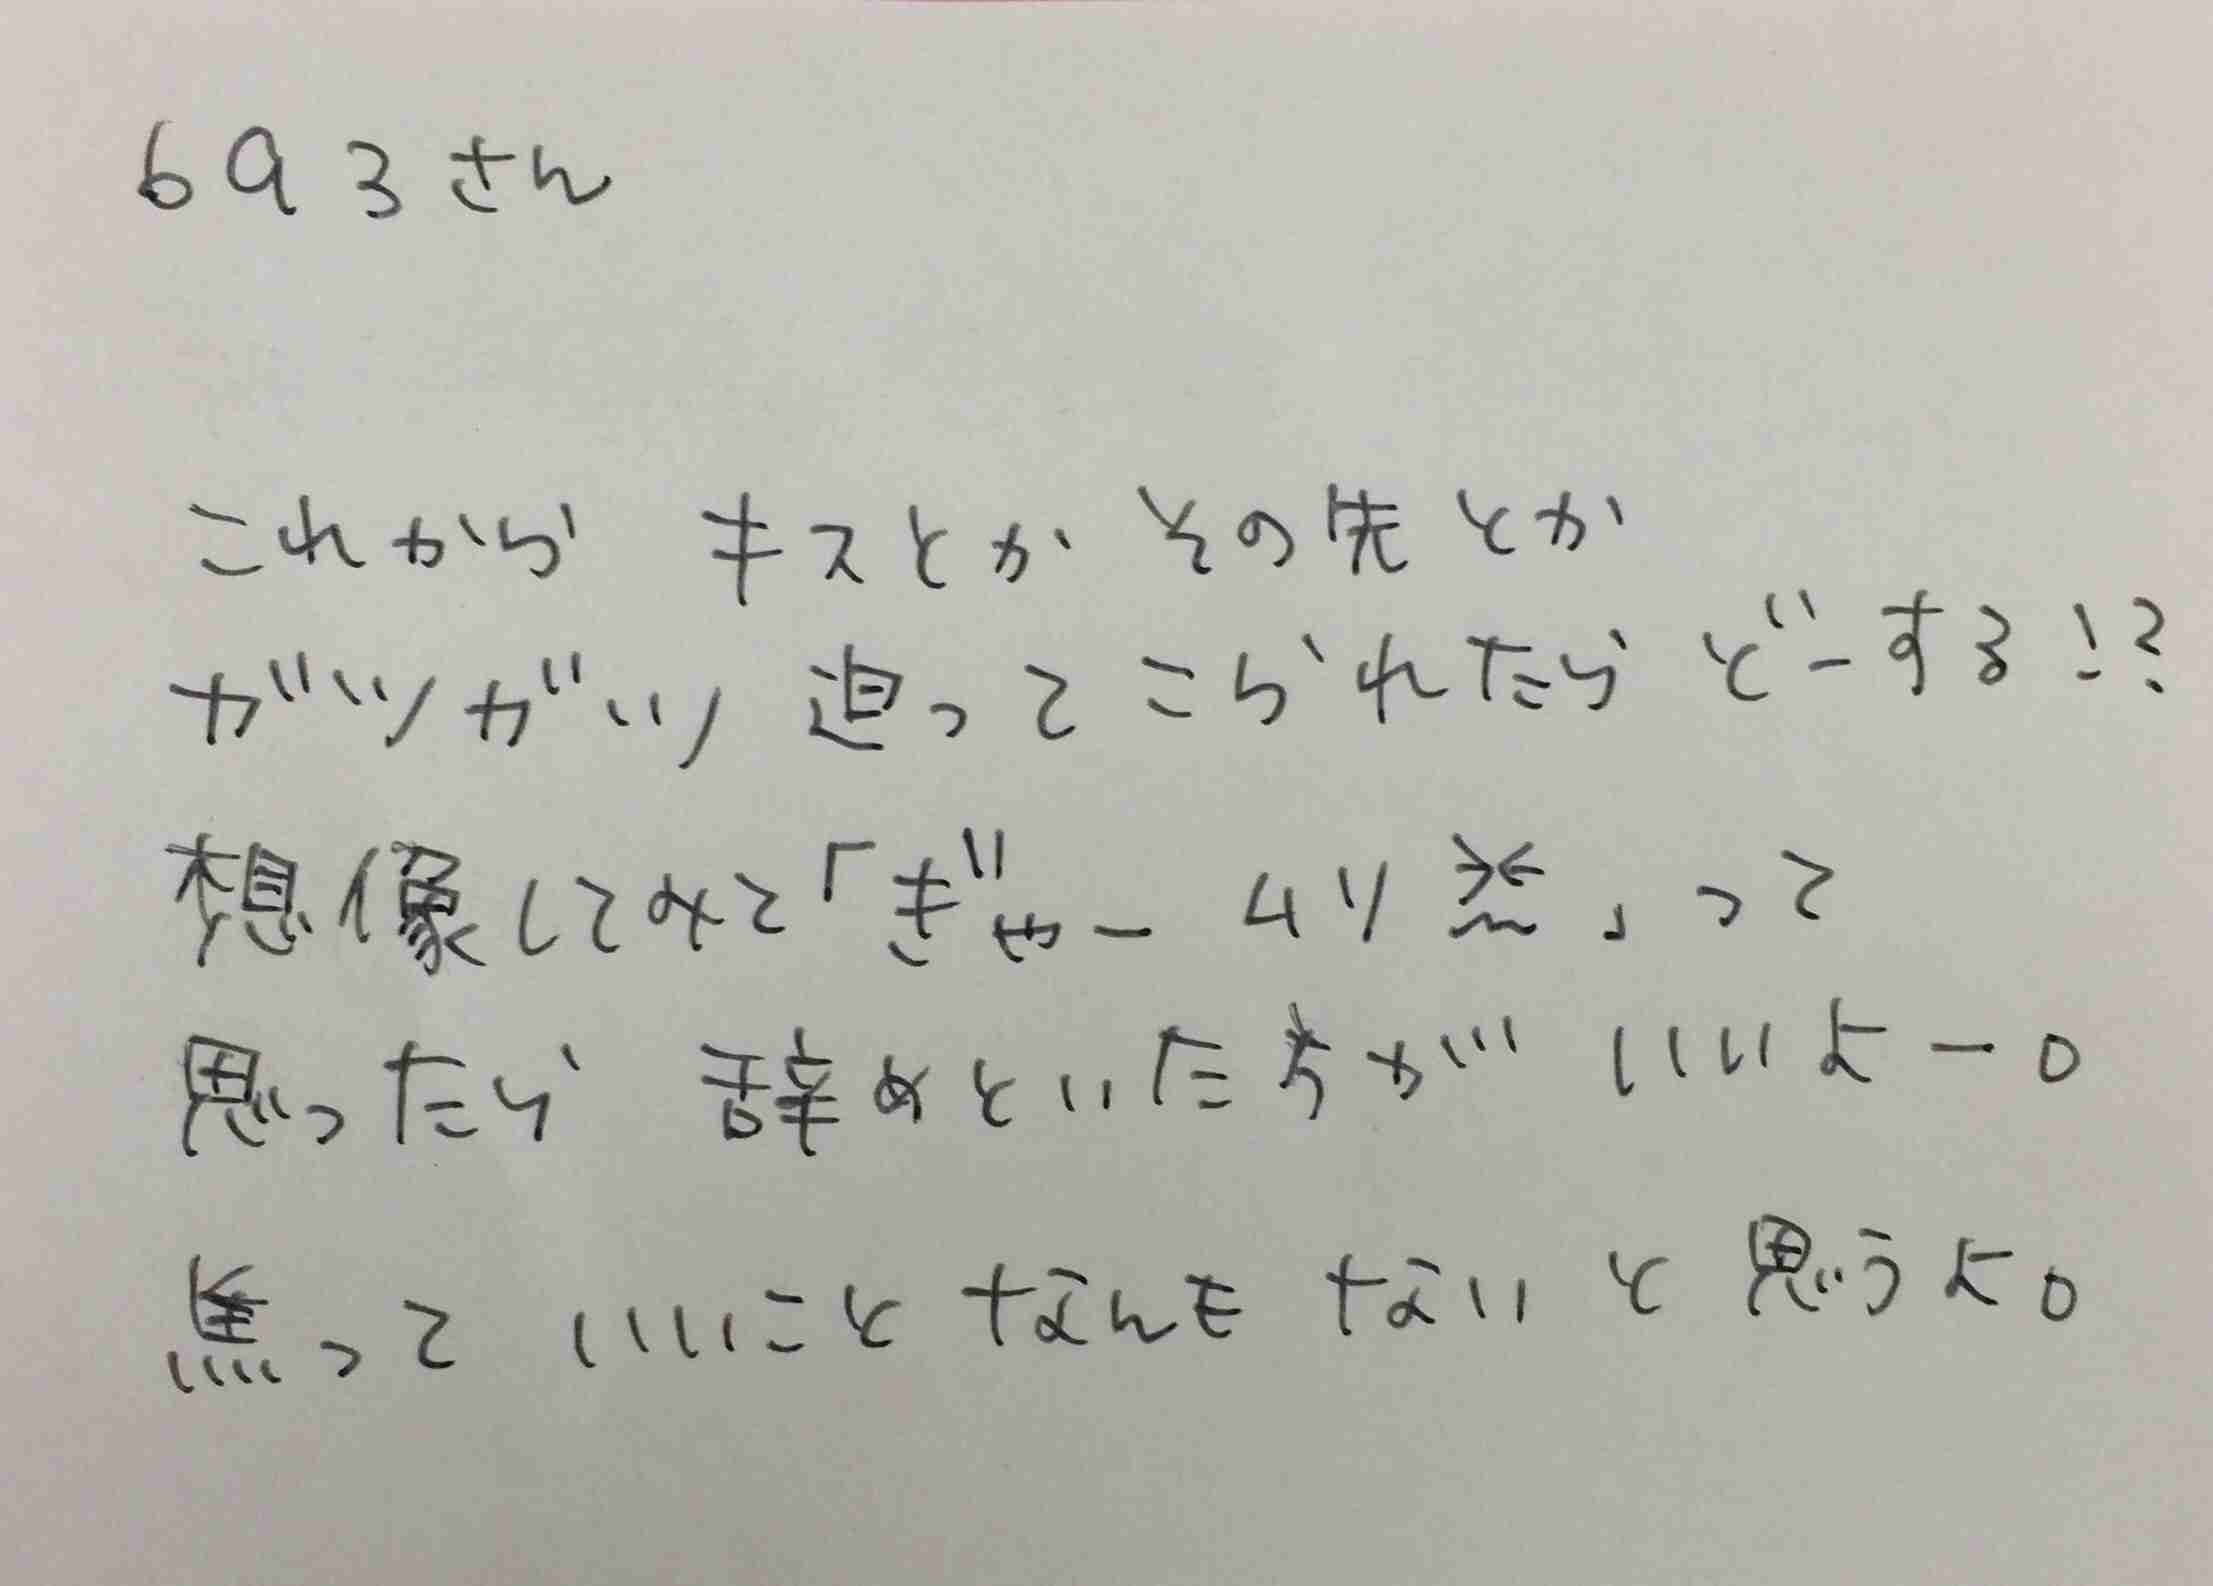 693さん
これから キスとか その先とか
ガツガツ 迫ってこられたら どーする!?
想像してみて「ぎゃームリ」って
思ったら 辞めといた方が いいよー。
焦って いいこと なんも ないと 思うよ。